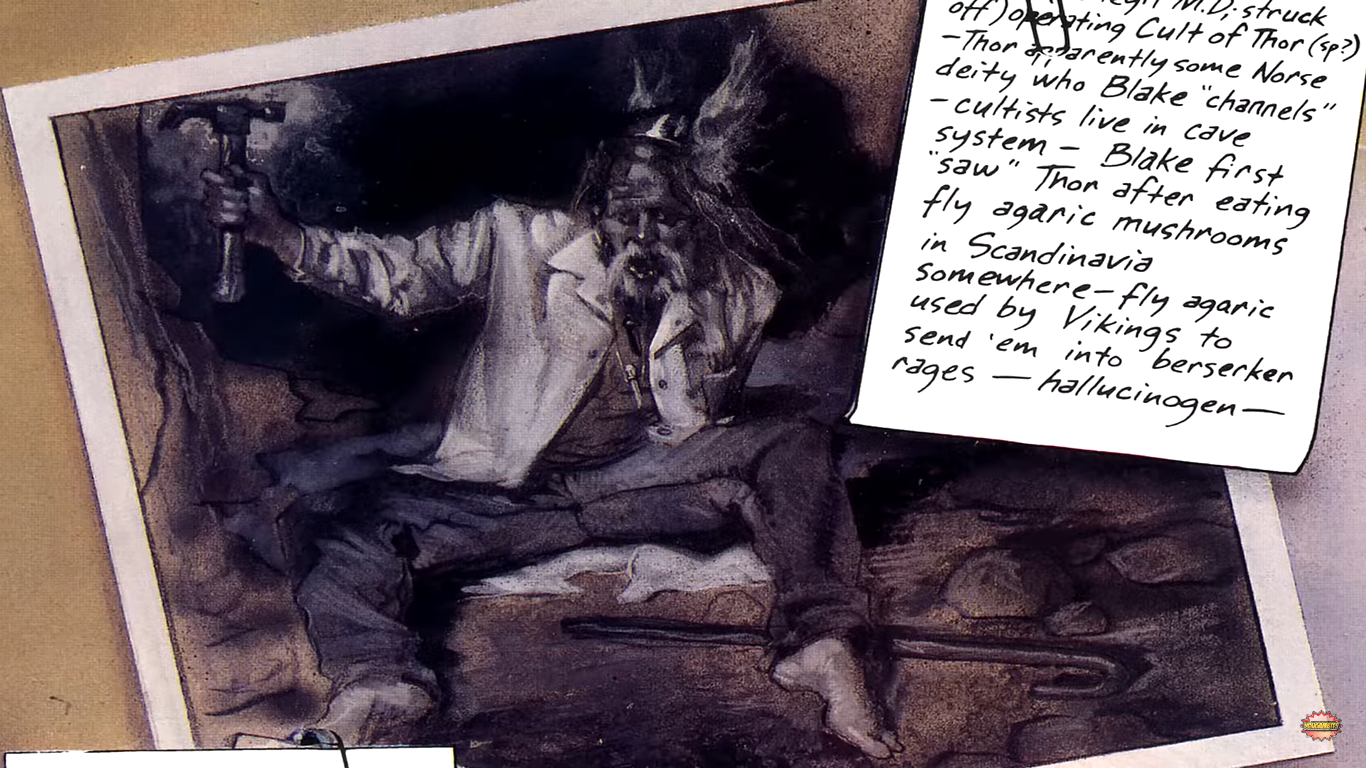 legit M.D; struck
off) operating Cult of Thor (sp?)
-Thor apparently some Norse
deity who Blake "channels"
-cultists live in cave
system - Blake first
"saw" Thor after eating
fly agaric mushrooms
in Scandinavia
somewhere-fly agaric
used by Vikings to
send 'em into berserker
rages - hallucinogen-